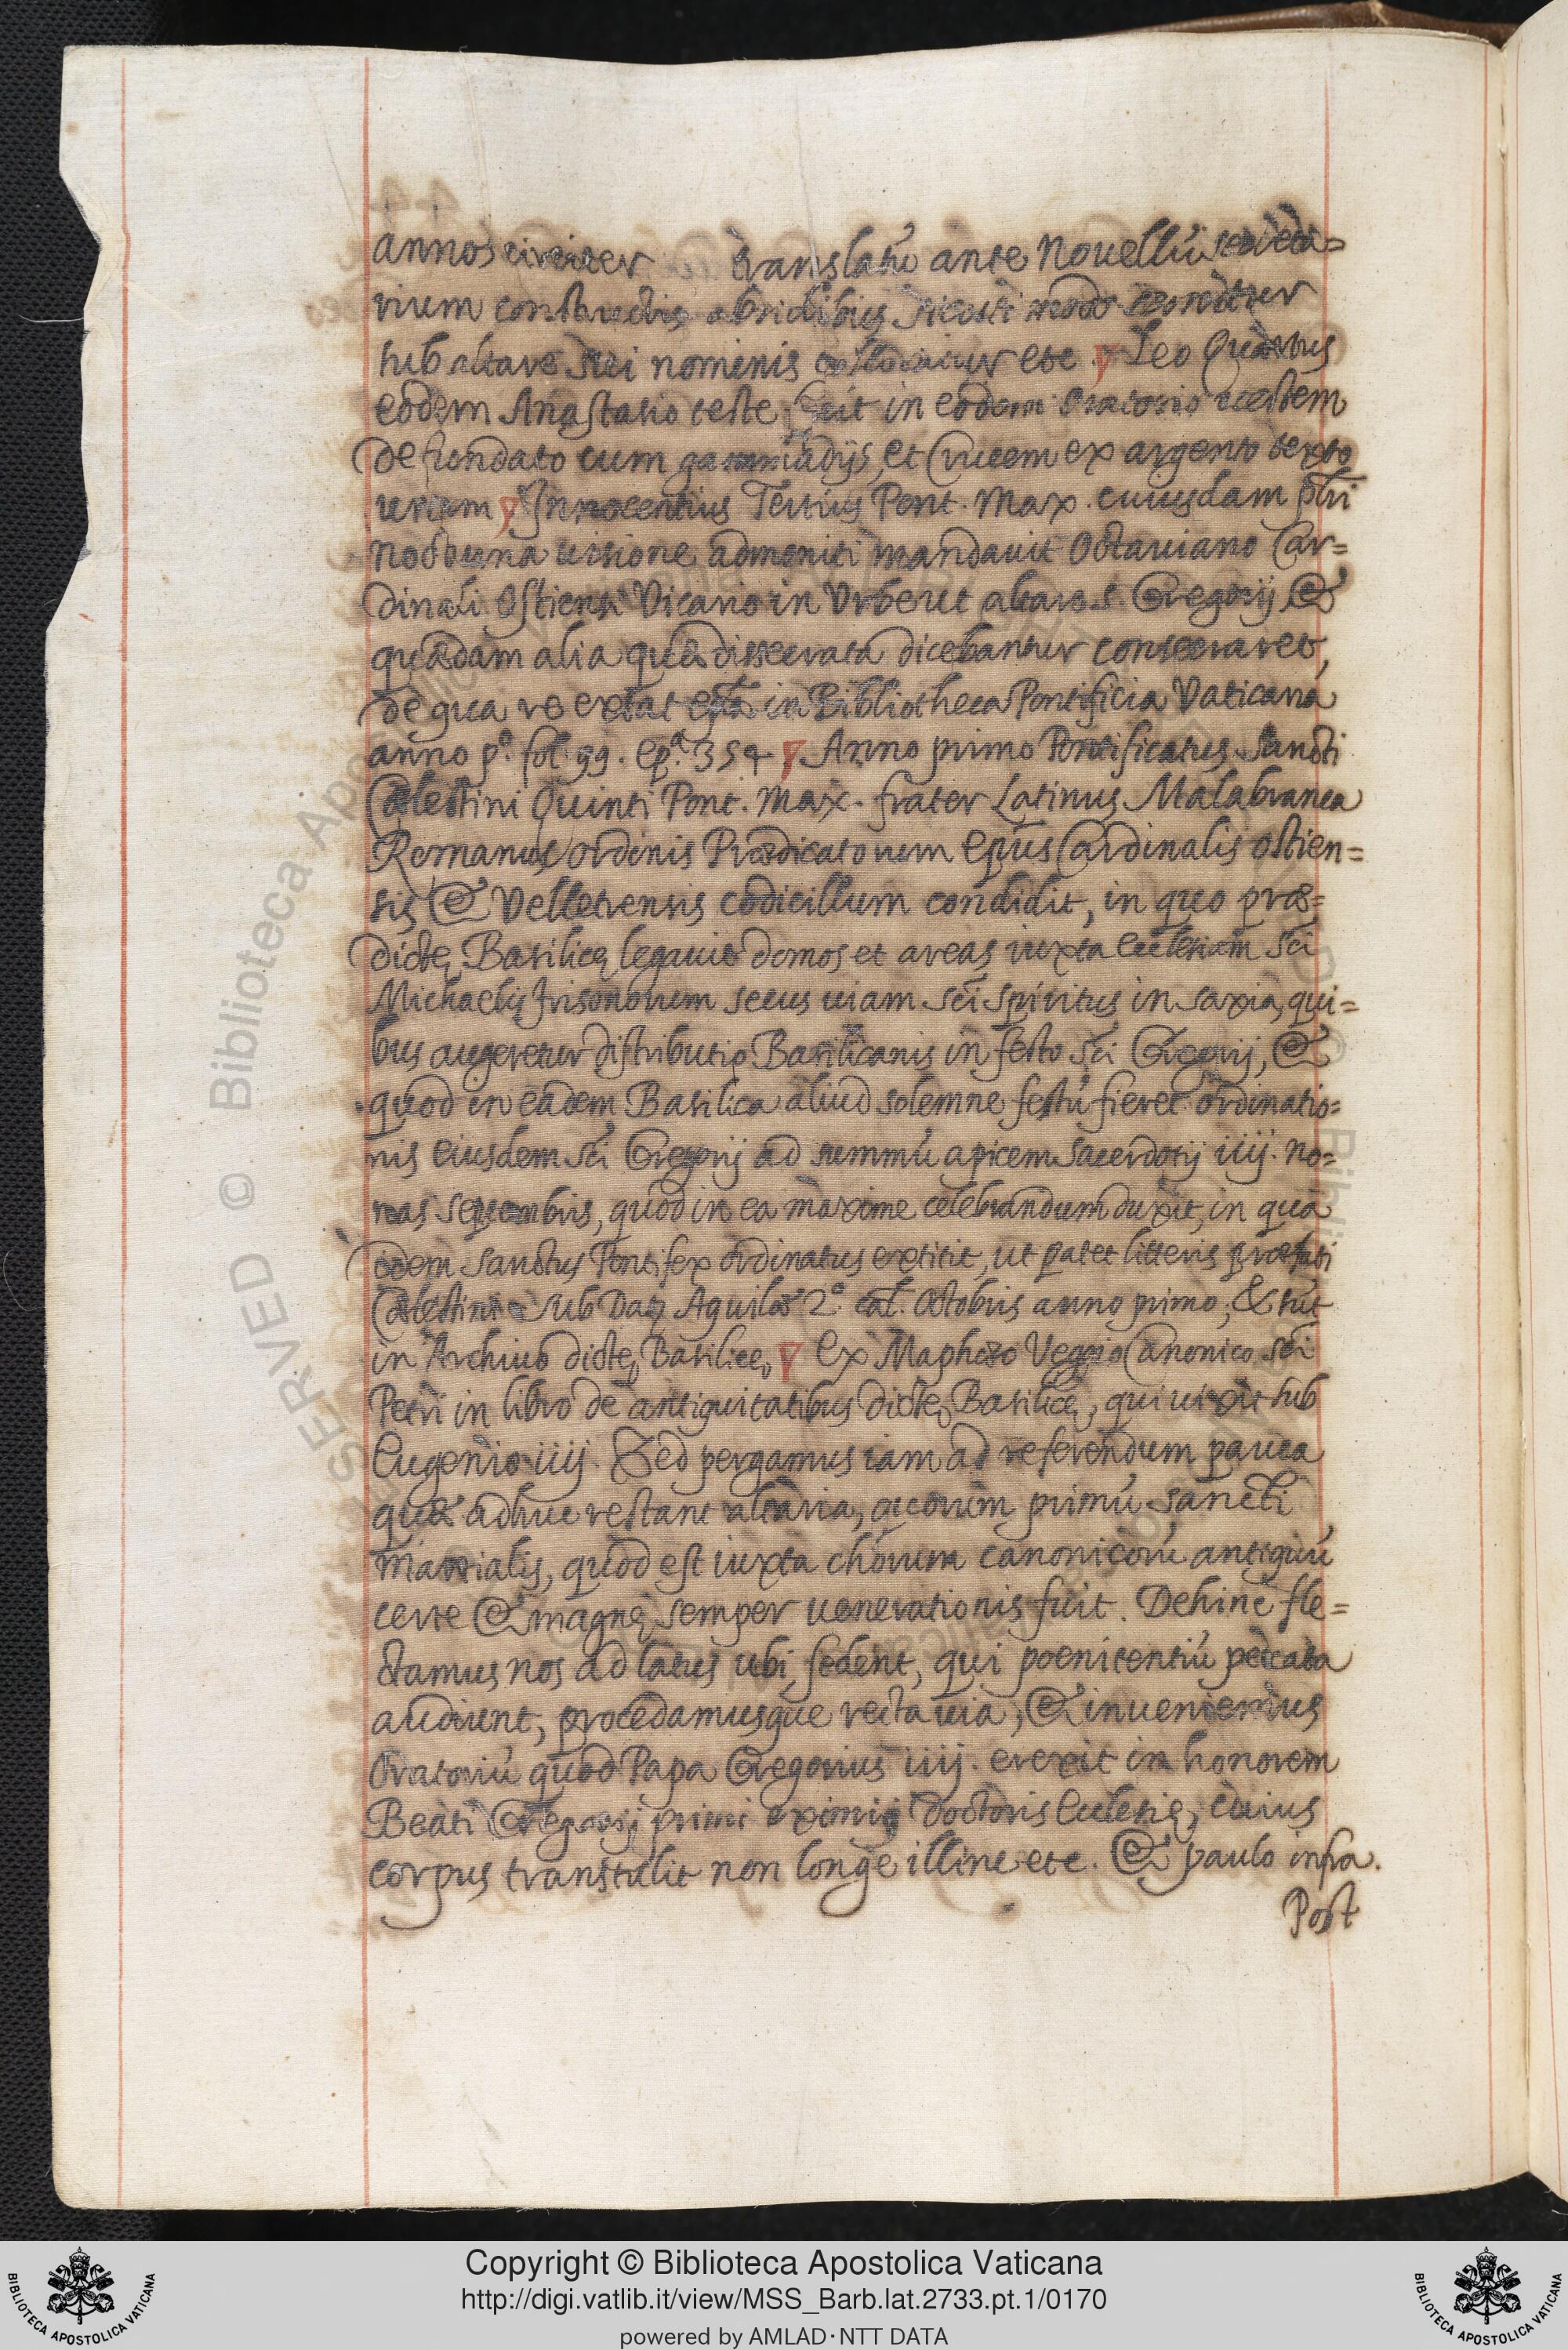 annos circiter translatũ ante Nouellũ secreta=
rium constructis absidibus sicuti modo
sub altare sui nominis etc. Leo Quartus
eodem Anastasio teste fecit in eodem Oratorio uestem
de fundato cum gammadijs, et Crucem ex argento texto
unam Innocentius Tertius Pont. Max. cuiusdam p̃bri
nocturna uisione admoniti mandauit Octauiano Car=
dinali Ostiensi Vicario in Vrbe ut altare S. Gregorij &
quædam alia quæ dissecrata dicebantur consecraret,
de qua re extat ep̃la in Bibliotheca Pontificia Vaticana
anno p.º fol. 99. ep.ª 354 Anno primo Pontificatus Sancti
Cælestini Quinti Pont. Max. frater Latinus Malabranca
Romanus ordinis Prædicatorum Ep̃us Cardinalis ostien=
sis & Velletrensis codicillum condidit, in quo præ=
dictę Basilicę legauit domos et areas iuxta ecclesiam Sc̃i
Michaelis frisonorum secus uiam Sc̃i Spiritus in saxia, qui=
bus augeretur distributio Basilicanis in festo Sc̃i Gregorij, &
quod in eadem Basilica aliud solemne festũ fieret ordinatio=
nis eiusdem Sc̃i Gregorij ad summũ apicem sacerdotij iiij. no=
nas septembris, quod in ea maxime celebrandum duxit, in qua
idem sanctus Pontifex ordinatus extitit, ut patet litteris præfati
Cælestini sub Dat. Aquilæ 2.º cal. Octobris anno primo, & sũt
in Archiuo dictę Basilicę, Ex Mapheo Vegio Canonico Sc̃i
Petri in libro de antiquitatibus dictę Basilicę, qui uixit sub
Eugenio iiij. Sed pergamus iam ad referendum pauca
quæ adhuc restant altaria, quorum primũ Sancti
Martialis, quod est iuxta chorum canonicorũ antiquũ
certe & magnę semper uenerationis fuit. Dehinc fle=
ctamus nos ad latus ubi sedent, qui poenitentiũ peccata
audiunt, procedamusque recta uia, & inueniemus
Oratoriũ quod Papa Gregorius iiij. erexit in honorem
Beati Gregorij primi eximij doctoris Ecclesię, cuius
corpus transtulit non longe illinc etc. & paulo infra.
Post
Copyright © Biblioteca Apostolica Vaticana
http://digi.vatlib.it/view/MSS_Barb.lat.2733.pt.1/0170
powered by AMLAD·NTT DATA
BIBLIOTECA APOSTOLICA VATICANA
BIBLIOTECA APOSTOLICA VATICANA